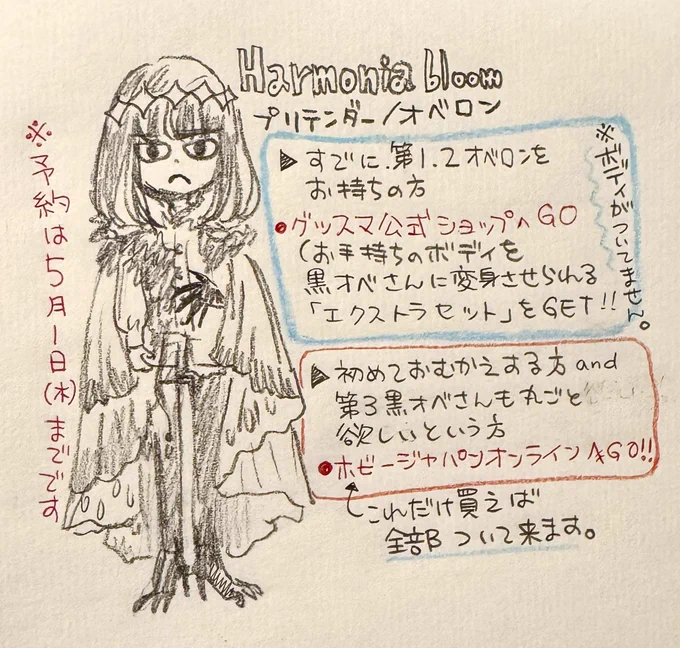 Harmonia bloom
プリテンダー/オベロン
※ボディがついてません。
▶ すでに.第1.2オベロンを
お持ちの方
●グッスマ公式ショップへGO
(お手持ちのボディを
黒オベさんに変身させられる
「エクストラセット」をGET!!
▶ 初めておむかえする方and
第3黒オベさんも丸ごと
欲しいという方
●ホビージャパンオンラインへGO!!
これだけ買えば
全部ついて来ます。
※予約は5月1日(木)までです